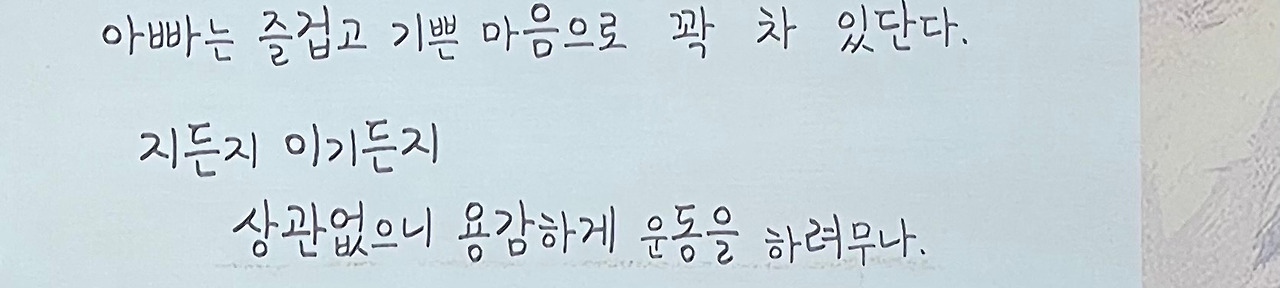 아빠는 즐겁고 기쁜 마음으로 꽉 차 있단다.
지든지 이기든지
상관없으니 용감하게 운동을 하려무나.